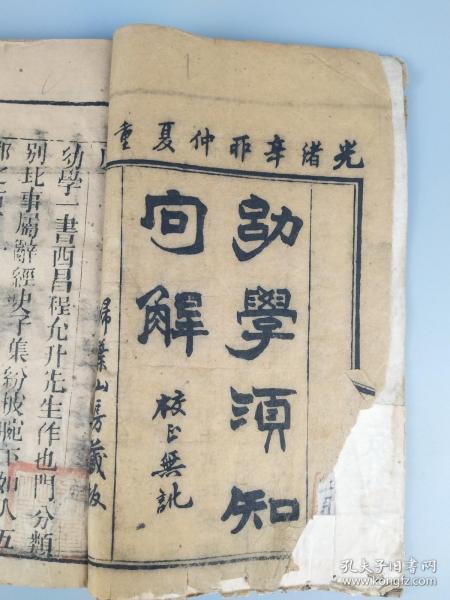 光緒辛卯仲夏重
幼學須知
句解
校正無訛
掃葉山房藏板
幼學一書西昌程允升先生作也門分類
別比事屬辭經史子集紛披腕下如入五
都之
孔夫子旧书网
www.kongfz.com